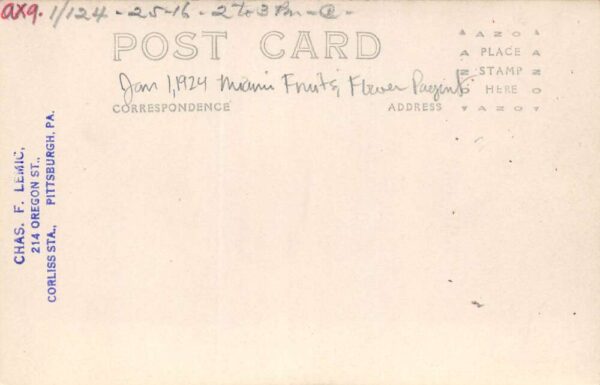 axq. 1/124 - 25-16 - 2 to 3 Pm - @ -
POST CARD
Jan 1, 1924 Miami Fruits, Flower Pagents
CORRESPONDENCE
ADDRESS
AZO
PLACE
STAMP
HERE
AZO
CHAS. F. LEMIC,
214 OREGON ST.,
CORLISS STA., PITTSBURGH, PA.